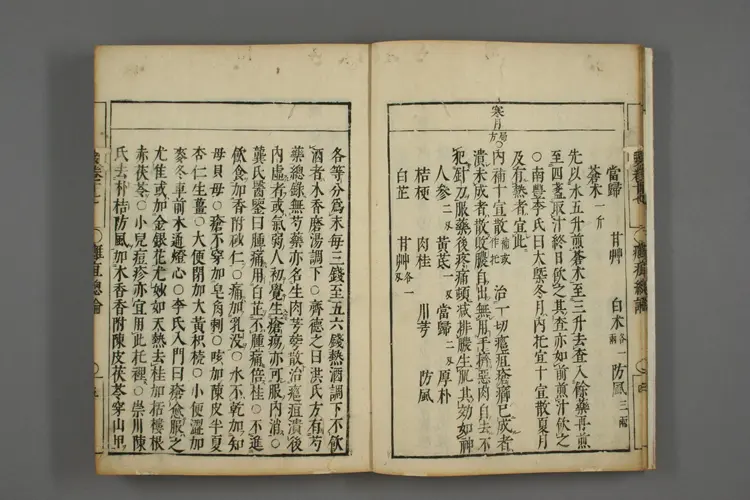 當歸 甘艸 白朮各一兩 防風三兩
蒼朮一斤
先以水五升煎蒼朮至三升去查入餘藥再煎
至四盞取汁終日飲之其查亦如前煎汁飲之
○南豐李氏曰大槩冬月內托宜十宣散夏月
及有熱者宜此
寒月方
○內補十宣散 治一切癰疽瘡癤已成者
潰未成者散收膿自出無用手擠惡肉自去不
犯針刀服藥後疼痛頓减排膿生肌其効如神
人參二兩 黃芪一兩 當歸二兩 厚朴
桔梗 肉桂 川芎 防風
白芷 甘艸各一兩
各等分爲末每三錢至五六錢熱酒調下不飮
酒者木香磨湯調下○齊德之曰洪氏方有芍
藥總錄無芍藥亦名生肉芎藭散治癰疽潰後
內虛者或氣弱人初覺生瘡瘍亦可服內消○
龔氏醫鑒曰腫痛用白芷不腫痛倍桂○不進
飲食加香附砂仁○痛加乳沒○水不乾加知
母貝母○瘡不穿加皂角刺○咳加陳皮半夏
杏仁生薑○大便閉加大黃枳梡○小便澀加
麥冬車前木通燈心○李氏入門曰瘡愈服之
尤佳或加金銀花尤妙如天熱去桂加栝樓根
赤茯苓○小兒痘疹亦宜用此托裡○崇川陳
氏去朴桔防風加木香香附陳皮茯苓穿山甲
癰疽總論